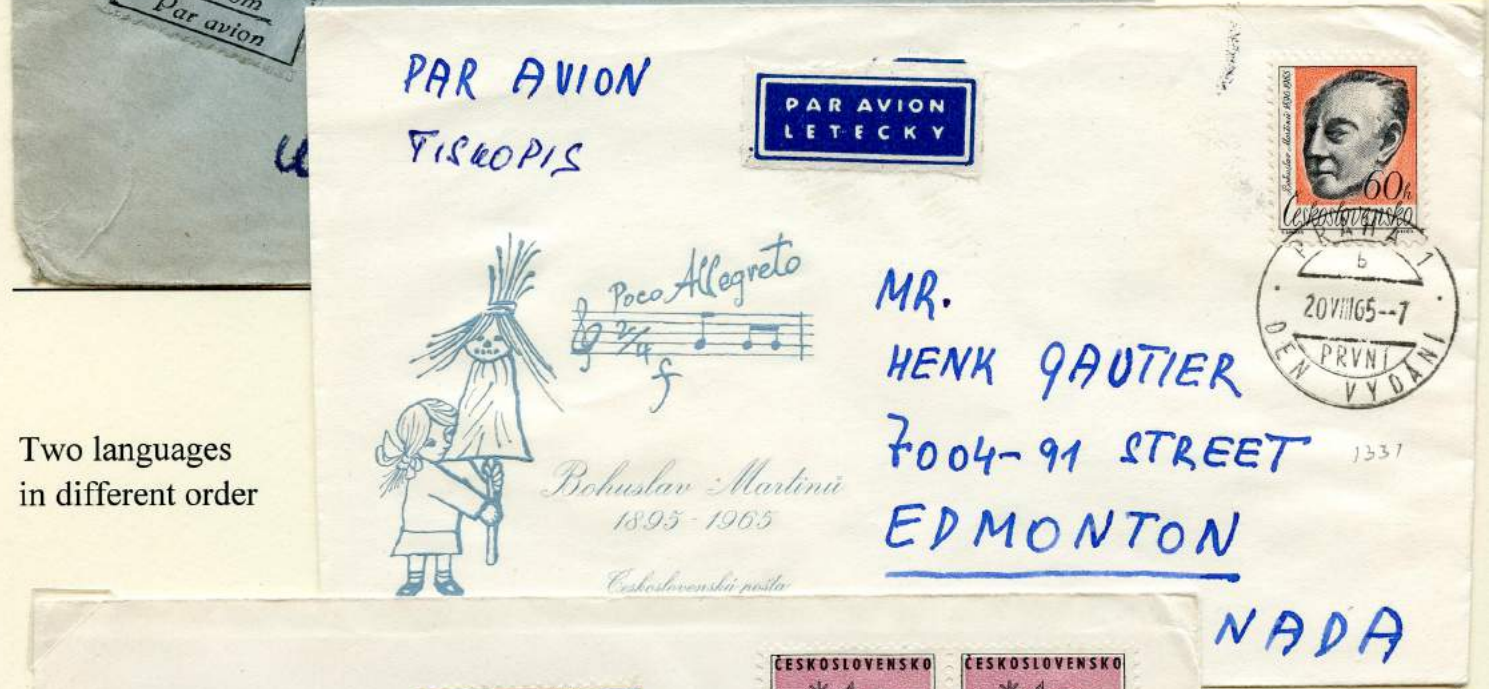 Par avion
PAR AVION
TISKOPIS
PAR AVION
LETECKY
Bohuslav Martinů 1890-1965
60h
Československo
PRAHA 1
b
20VIII65--7
PRVNÍ
DEN VYDÁNÍ
Poco Allegreto
2/4
f
Bohuslav Martinů
1895 - 1965
Československá pošta
MR.
HENK GAUTIER
7004-91 STREET
EDMONTON
NADA
1337
Two languages
in different order
ČESKOSLOVENSKO
ČESKOSLOVENSKO